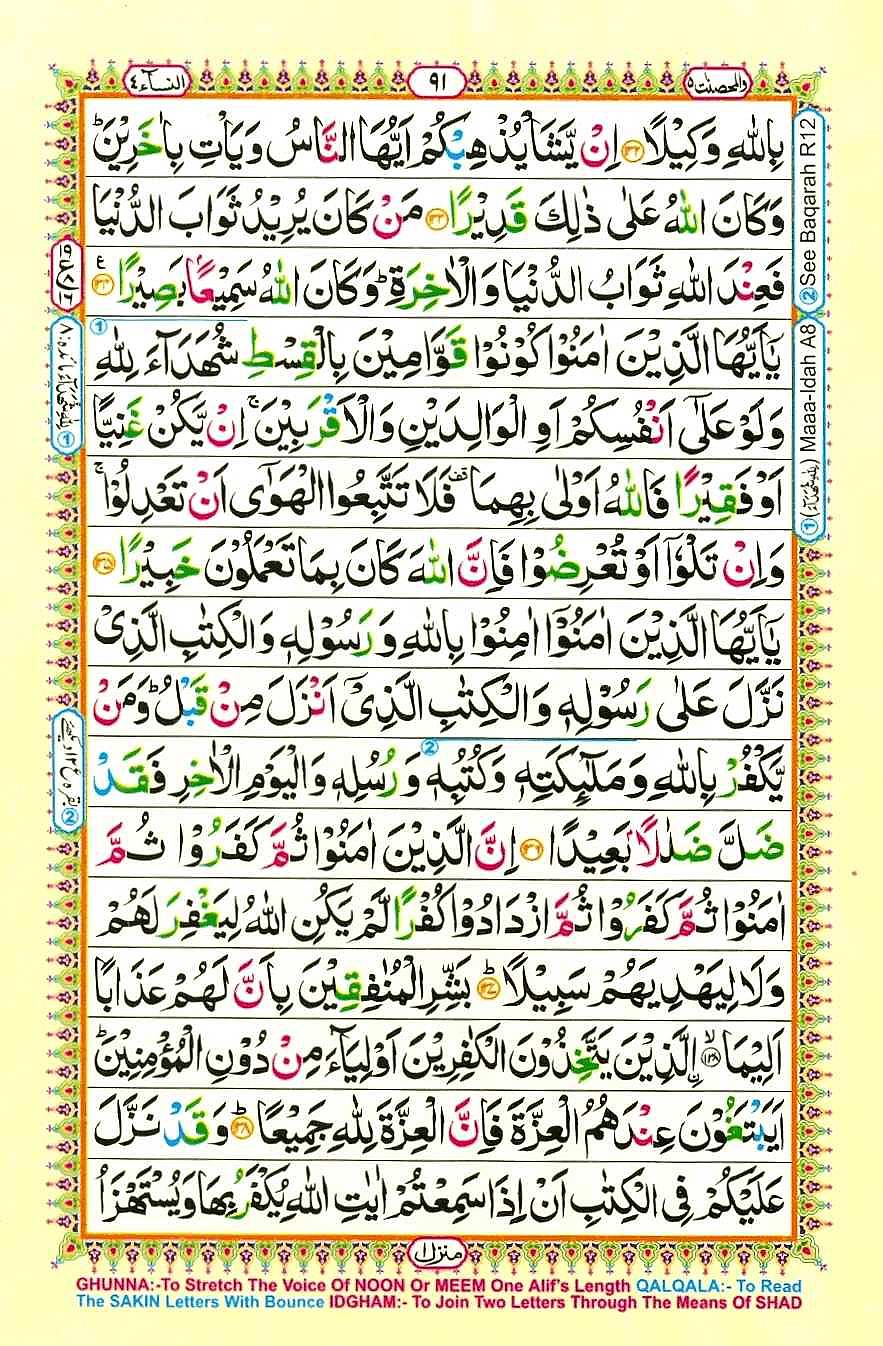 والمحصنٰت ٥
٩١
النسآء ٤
بِاللّٰهِ وَكِيْلًا ﴿۱۳۲﴾ اِنْ يَّشَاْ يُذْهِبْكُمْ اَيُّهَا النَّاسُ وَيَاْتِ بِاٰخَرِيْنَ ؕ
وَكَانَ اللّٰهُ عَلٰى ذٰلِكَ قَدِيْرًا ﴿۱۳۳﴾ مَنْ كَانَ يُرِيْدُ ثَوَابَ الدُّنْيَا
فَعِنْدَ اللّٰهِ ثَوَابُ الدُّنْيَا وَالْاٰخِرَةِ ؕ وَكَانَ اللّٰهُ سَمِيْعًۢا بَصِيْرًا ﴿۱۳۴﴾
يٰۤاَيُّهَا الَّذِيْنَ اٰمَنُوْا كُوْنُوْا قَوَّامِيْنَ بِالْقِسْطِ شُهَدَآءَ لِلّٰهِ
وَلَوْ عَلٰۤى اَنْفُسِكُمْ اَوِ الْوَالِدَيْنِ وَالْاَقْرَبِيْنَ ۚ اِنْ يَّكُنْ غَنِيًّا
اَوْ فَقِيْرًا فَاللّٰهُ اَوْلٰى بِهِمَا قف فَلَا تَتَّبِعُوا الْهَوٰۤى اَنْ تَعْدِلُوْا ۚ
وَاِنْ تَلْوٗۤا اَوْ تُعْرِضُوْا فَاِنَّ اللّٰهَ كَانَ بِمَا تَعْمَلُوْنَ خَبِيْرًا ﴿۱۳۵﴾
يٰۤاَيُّهَا الَّذِيْنَ اٰمَنُوْۤا اٰمِنُوْا بِاللّٰهِ وَرَسُوْلِهٖ وَالْكِتٰبِ الَّذِىْ
نَزَّلَ عَلٰى رَسُوْلِهٖ وَالْكِتٰبِ الَّذِىْۤ اَنْزَلَ مِنْ قَبْلُ ؕ وَمَنْ
يَّكْفُرْ بِاللّٰهِ وَمَلٰٓئِكَتِهٖ وَكُتُبِهٖ وَرُسُلِهٖ وَالْيَوْمِ الْاٰخِرِ فَقَدْ
ضَلَّ ضَلٰلًاۢ بَعِيْدًا ﴿۱۳۶﴾ اِنَّ الَّذِيْنَ اٰمَنُوْا ثُمَّ كَفَرُوْا ثُمَّ
اٰمَنُوْا ثُمَّ كَفَرُوْا ثُمَّ ازْدَادُوْا كُفْرًا لَّمْ يَكُنِ اللّٰهُ لِيَغْفِرَ لَهُمْ
وَلَا لِيَهْدِيَهُمْ سَبِيْلًا ﴿۱۳۷﴾ بَشِّرِ الْمُنٰفِقِيْنَ بِاَنَّ لَهُمْ عَذَابًا
اَلِيْمَا ﴿۱۳۸﴾ۙ اۨلَّذِيْنَ يَتَّخِذُوْنَ الْكٰفِرِيْنَ اَوْلِيَآءَ مِنْ دُوْنِ الْمُؤْمِنِيْنَ ؕ
اَيَبْتَغُوْنَ عِنْدَهُمُ الْعِزَّةَ فَاِنَّ الْعِزَّةَ لِلّٰهِ جَمِيْعًا ؕ﴿۱۳۹﴾ وَقَدْ نَزَّلَ
عَلَيْكُمْ فِى الْكِتٰبِ اَنْ اِذَا سَمِعْتُمْ اٰيٰتِ اللّٰهِ يُكْفَرُ بِهَا وَيُسْتَهْزَاُ
② See Baqarah R12
① (لِلّٰهِ شُهَدَآءَ) Maaa-Idah A8
لِلّٰهِ شُهَدَآءَ مائدہ : ٨ ①
بقرہ ع ١٢ دیکھئے ②
منزل ١
GHUNNA:-To Stretch The Voice Of NOON Or MEEM One Alif's Length QALQALA:- To Read
The SAKIN Letters With Bounce IDGHAM:- To Join Two Letters Through The Means Of SHAD